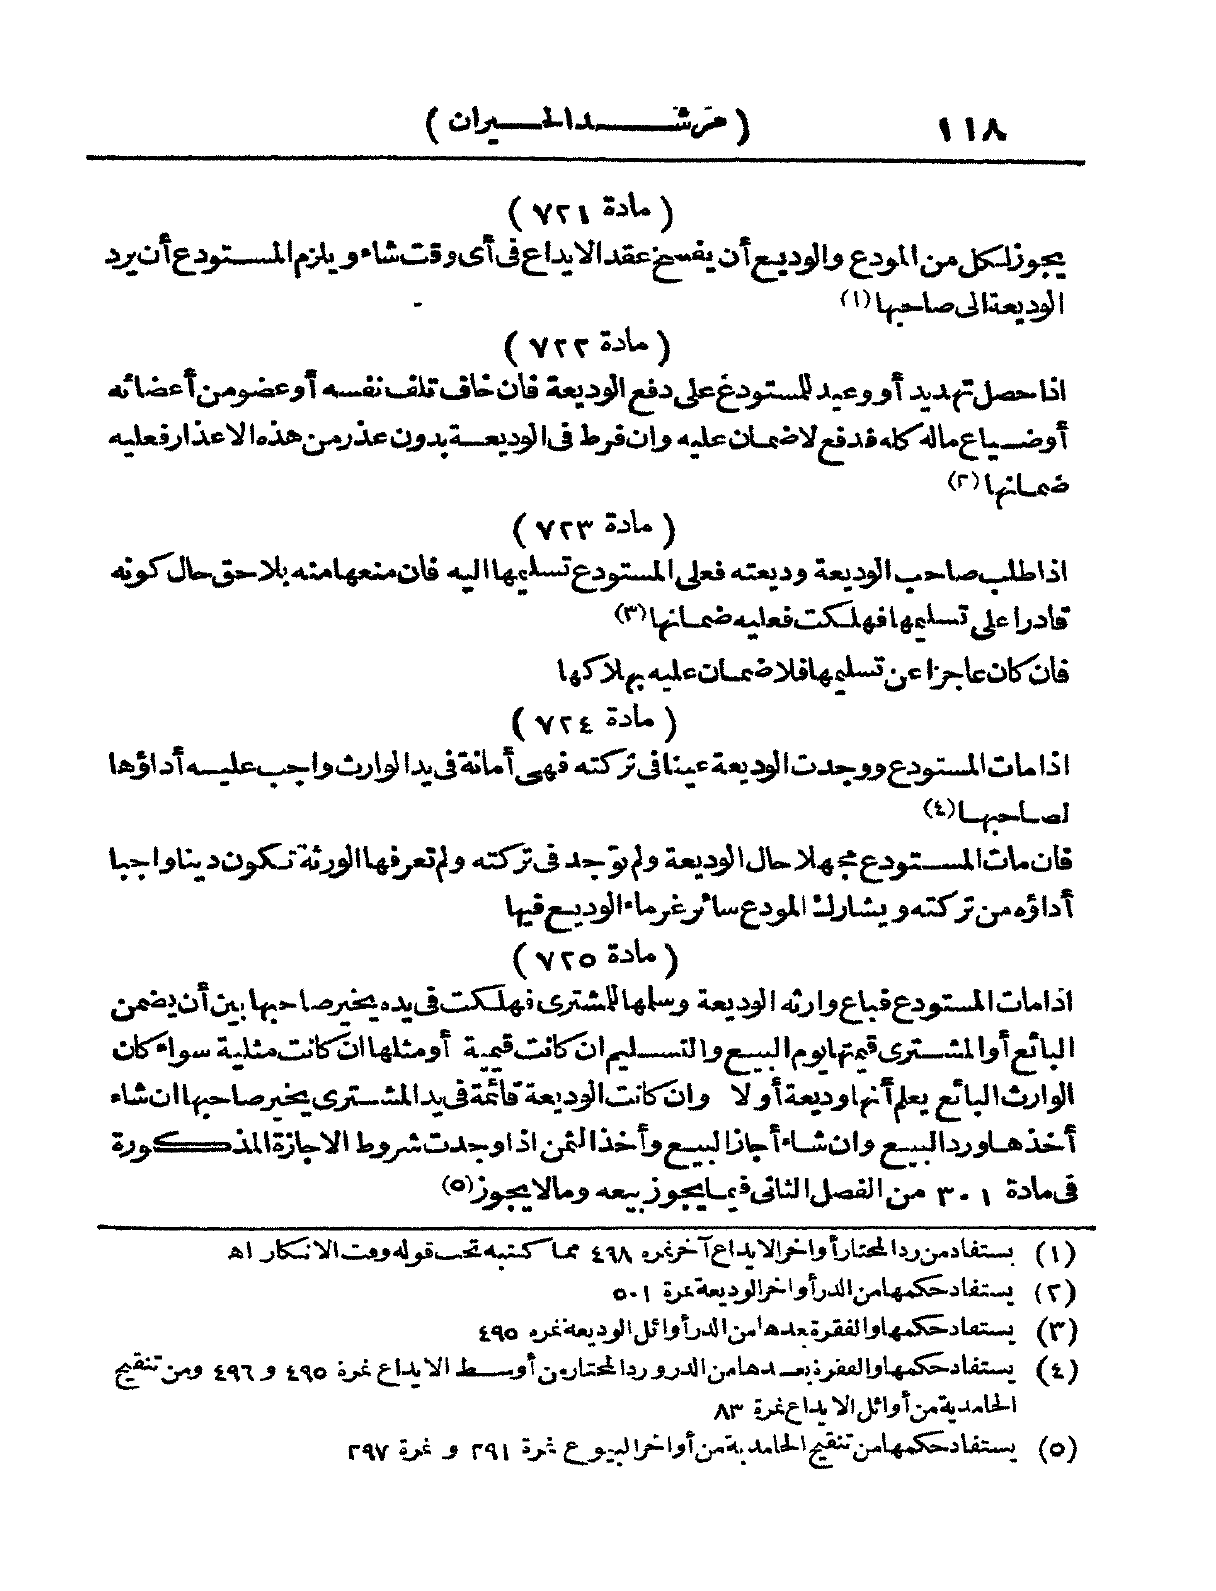 ١١٨ (مرشد الحيران)
(مادة ٧٢١)
يجوز لكل من المودع والوديع أن يفسخ عقد الايداع فى أى وقت شاء ويلزم المستودع أن يرد
الوديعة الى صاحبها (١)
(مادة ٧٢٢)
اذا حصل تهديد أو وعيد للمستودع على دفع الوديعة فان خاف تلف نفسه أو عضو من أعضائه
أو ضياع ماله كله فدفع لا ضمان عليه وان فرط فى الوديعة بدون عذر من هذه الاعذار فعليه
ضمانها (٢)
(مادة ٧٢٣)
اذا طلب صاحب الوديعة وديعته فعلى المستودع تسليمها اليه فان منعها منه بلا حق حال كونه
قادرا على تسليمها فهلكت فعليه ضمانها (٣)
فان كان عاجزا عن تسليمها فلا ضمان عليه بهلاكها
(مادة ٧٢٤)
اذا مات المستودع ووجدت الوديعة عينا فى تركته فهى أمانة فى يد الوارث واجب عليه أداؤها
لصاحبها (٤)
فان مات المستودع مجهلا حال الوديعة ولم توجد فى تركته ولم تعرفها الورثة تكون دينا واجبا
أداؤه من تركته ويشارك المودع سائر غرماء الوديع فيها
(مادة ٧٢٥)
اذا مات المستودع فباع وارثه الوديعة وسلمها للمشترى فهلكت فى يده يخير صاحبها بين أن يضمن
البائع أو المشترى قيمتها يوم البيع والتسليم ان كانت قيمية أو مثلها ان كانت مثلية سواء كان
الوارث البائع يعلم أنها وديعة أو لا وان كانت الوديعة قائمة فى يد المشترى يخير صاحبها ان شاء
أخذها ورد البيع وان شاء أجاز البيع وأخذ الثمن اذا وجدت شروط الاجازة المذكورة
فى مادة ٣٠١ من الفصل الثانى فيما يجوز بيعه وما لا يجوز (٥)
(١) يستفاد من رد المحتار أواخر الايداع آخر نمره ٤٩٨ مما كتبه تحت قوله وقت الانكار اه
(٢) يستفاد حكمها من الدر أواخر الوديعة نمرة ٥٠١
(٣) يستفاد حكمها والفقرة بعدها من الدر أوائل الوديعة نمره ٤٩٥
(٤) يستفاد حكمها والفقرة بعدها من الدر ورد المحتار من أوسط الايداع نمرة ٤٩٥ و ٤٩٦ ومن تنقيح
الحامدية من أوائل الايداع نمرة ٨٣
(٥) يستفاد حكمها من تنقيح الحامدية من أواخر البيوع نمرة ٢٩١ و نمرة ٢٩٧